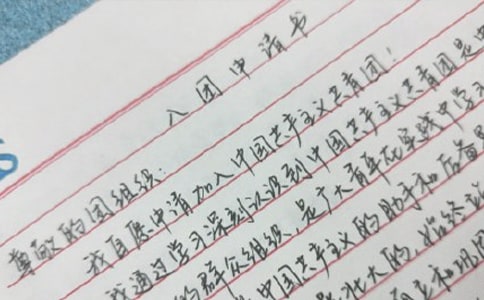 入团申请书
尊敬的团组织:
我自愿申请加入中国共产主义共青团!
我通过学习深刻认识到中国共产主义共青团是中
的群众组织,是广大青年在实践中学习
中国共产主义的助手和后备
壮大的,始终站
和巩固